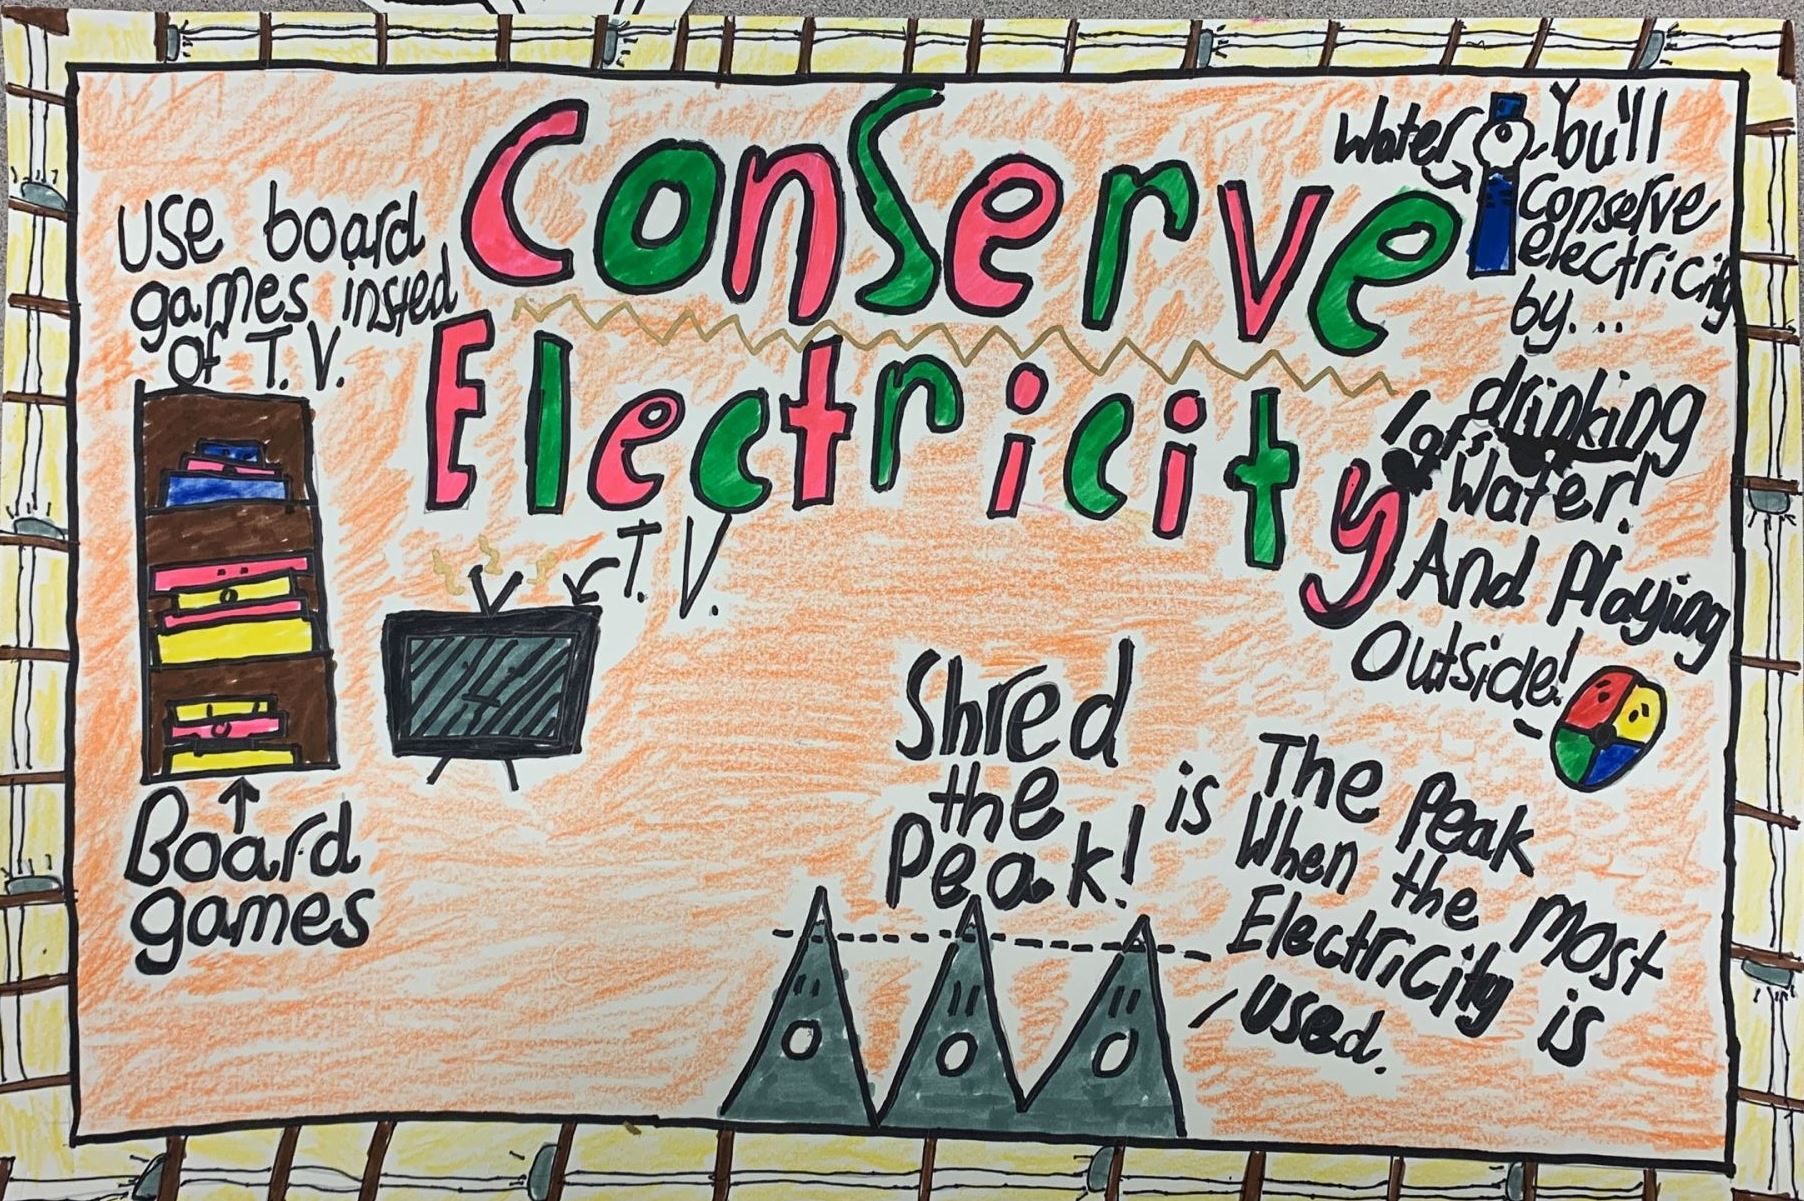 Conserve
Electricity
use board
games insted
of T.V.
T.V.
Board
games
Water
You'll
conserve
electricity
by...
drinking
lots
Water!
And Playing
Outside!
Shred
the
Peak!
is The Peak
When the most
Electricity is
used.